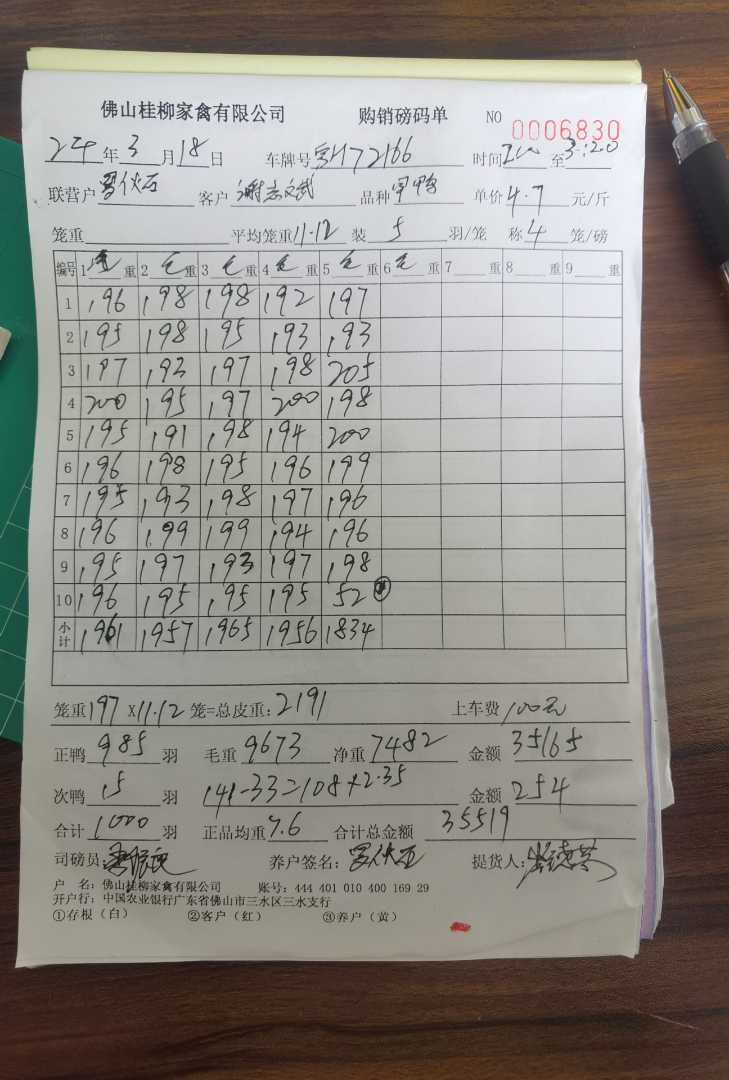 佛山桂柳家禽有限公司 购销磅码单 NO 0006830
24年3月18日 车牌号 H72166 时间 至3:20
联营户 罗伙石 客户 谢志文武 品种 单价4.7元/斤
笼重 平均笼重11.12 装5羽/笼 称4笼/磅
编号 1 毛重 2 毛重 3 毛重 4 毛重 5 毛重 6 毛重 7 重 8 重 9 重
1 196 198 198 192 197
2 195 198 195 193 193
3 197 193 197 198 205
4 200 195 197 200 198
5 195 191 198 194 200
6 196 198 195 196 199
7 195 193 198 197 196
8 196 199 199 194 196
9 195 197 193 197 198
10 196 195 195 195 52
小计 1961 1957 1965 1956 1834
笼重197×11.12笼=总皮重:2191 上车费100元
正鸭985羽 毛重9673 净重7482 金额35165
次鸭15羽 141-33=108×2.35 金额254
合计1000羽 正品均重7.6 合计总金额35519
司磅员: 养户签名:罗伙石 提货人:
户 名:佛山桂柳家禽有限公司 账号:444 401 010 400 169 29
开户行:中国农业银行广东省佛山市三水区三水支行
①存根(白) ②客户(红) ③养户(黄)